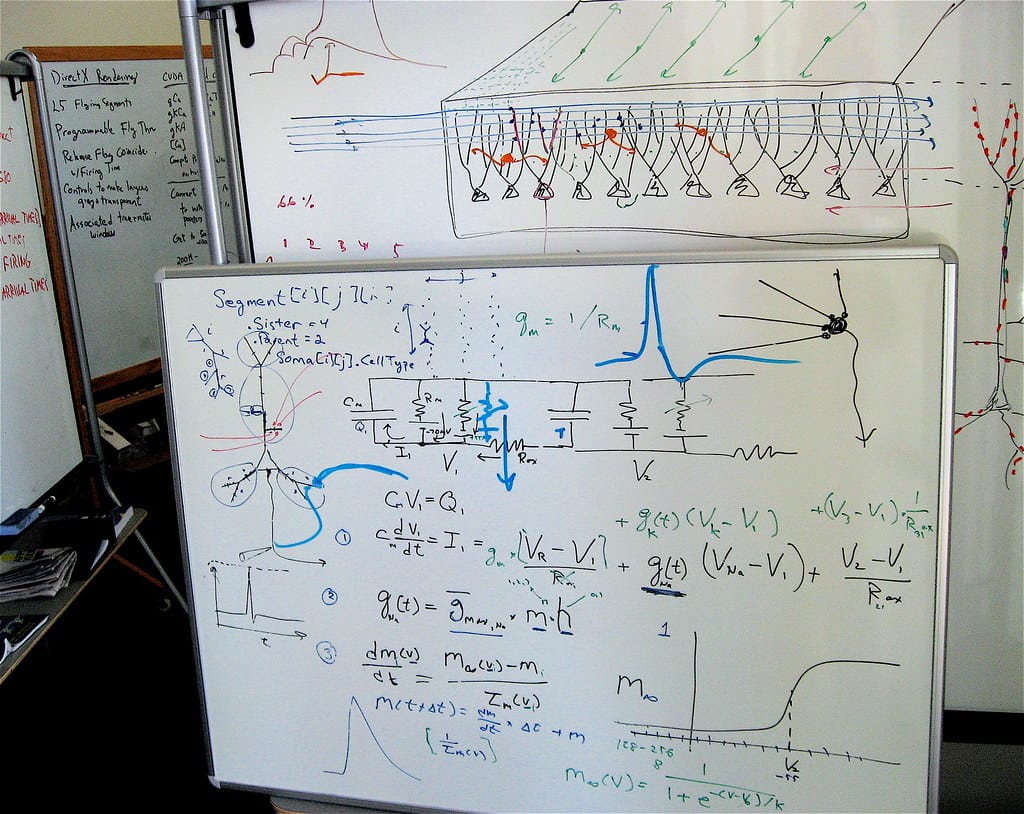 DirectX Rendering
L5 Flying Segments
Programmable Fly Thru
Release Flag Coincide
w/Firing Time
Controls to make layers
gray + transparent
Associated
window
CUDA
gCa
gKCa
gKA
[Ca]
Convert
FIRING
ARRIVAL TIMES
66%
1 2 3 4 5
Segment[i][j][i]
.Sister = 4
.Parent = 2
Soma[i][j].CellType
i
j
i
gm = 1/Rm
Cm
Q1
Rm
-70mV
I1
V1
Rax
V2
CmV1 = Q1
① Cm dV1/dt = I1 = gm * (VR - V1)/Rm + gNa(t) (VNa - V1) + (V2 - V1)/R21ax
+ gK(t) (VK - V1) + (V3 - V1) · 1/R31ax
② gNa(t) = g̅max,Na × m · h
③ dm(v)/dt = (m∞(v1) - m1)/τm(v1)
m(t+Δt) = dm/dt × Δt + m
[1/τm(v)]
t
1
m∞
128-256
8
V½
-55
m∞(V) = 1/(1 + e^-(V-V½)/k)